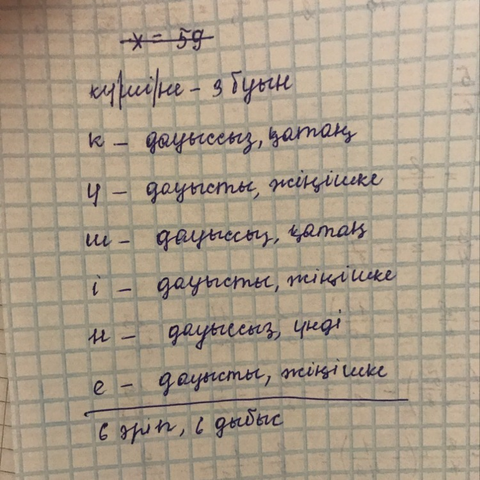 х = 59
кү|ші|не – 3 буын
к – дауыссыз, қатаң
ү – дауысты, жіңішке
ш – дауыссыз, қатаң
і – дауысты, жіңішке
н – дауыссыз, үнді
е – дауысты, жіңішке
6 әріп, 6 дыбыс